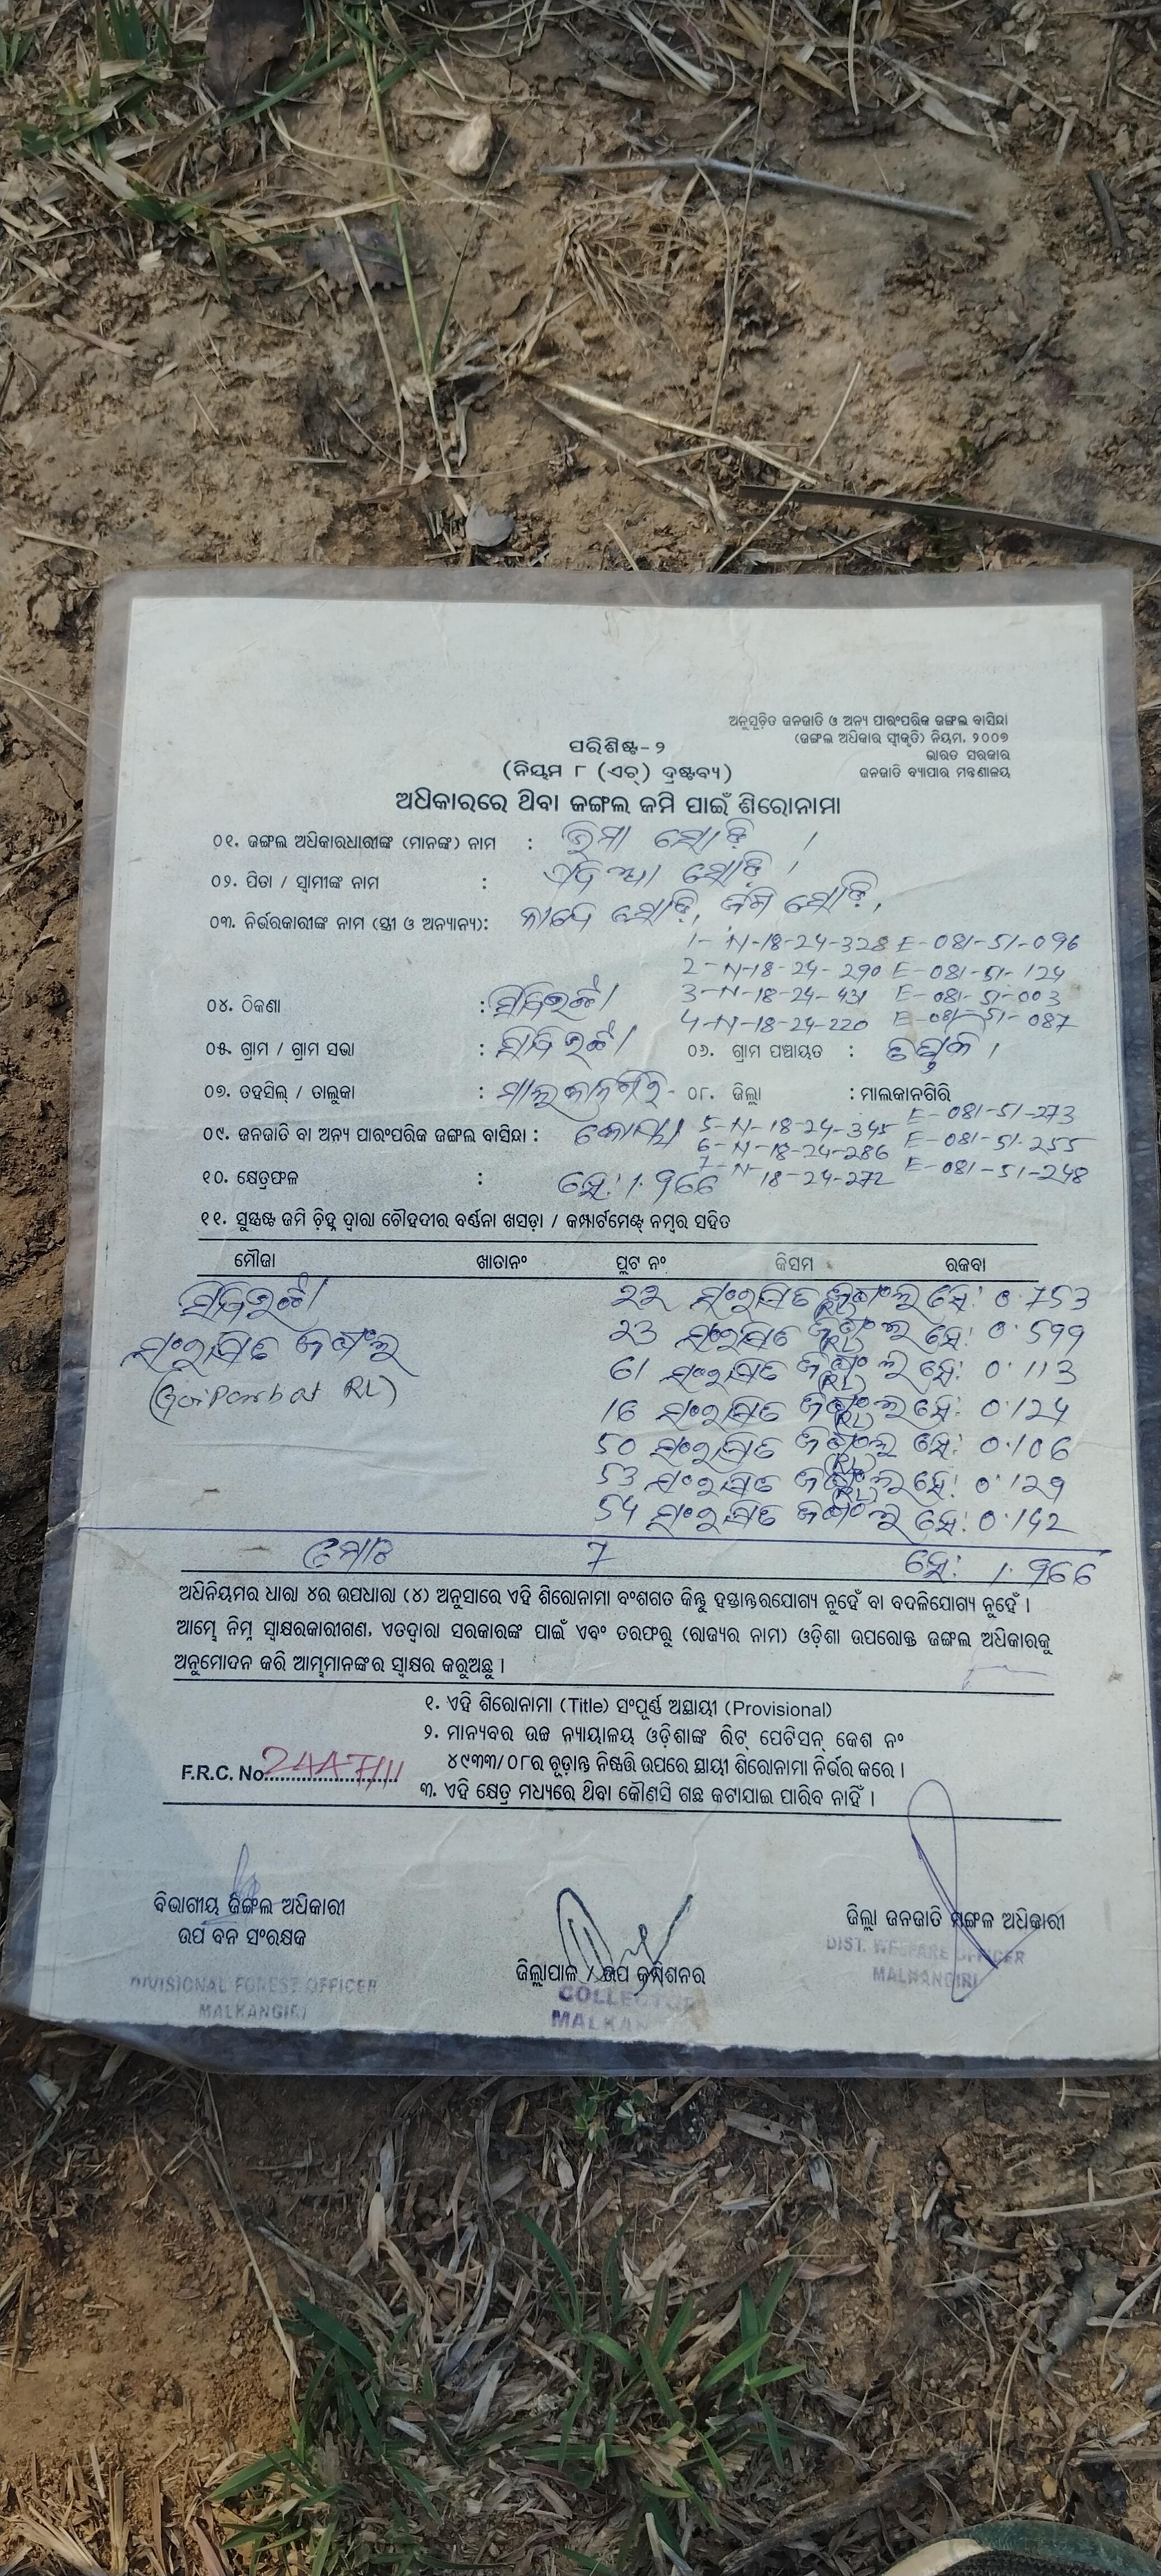 ଅନୁସୂଚିତ ଜନଜାତି ଓ ଅନ୍ୟ ପାରଂପରିକ ଜଙ୍ଗଲ ବାସିନ୍ଦା
(ଜଙ୍ଗଲ ଅଧିକାର ସ୍ୱୀକୃତି) ନିୟମ, ୨୦୦୭
ଭାରତ ସରକାର
ଜନଜାତି ବ୍ୟାପାର ମନ୍ତ୍ରଣାଳୟ
ପରିଶିଷ୍ଟ-୨
(ନିୟମ ୮ (ଏଚ୍) ଦ୍ରଷ୍ଟବ୍ୟ)
ଅଧିକାରରେ ଥିବା ଜଙ୍ଗଲ ଜମି ପାଇଁ ଶିରୋନାମା
୦୧. ଜଙ୍ଗଲ ଅଧିକାରଧାରୀଙ୍କ (ମାନଙ୍କ) ନାମ :
୦୨. ପିତା / ସ୍ୱାମୀଙ୍କ ନାମ :
୦୩. ନିର୍ଭରକାରୀଙ୍କ ନାମ (ସ୍ତ୍ରୀ ଓ ଅନ୍ୟାନ୍ୟ):
1- N-18-24-328 E-081-51-096
2-N-18-24-290 E-081-51-124
3-N-18-24-431 E-081-51-003
୦୪. ଠିକଣା :
4-N-18-24-220 E-081-51-087
୦୫. ଗ୍ରାମ / ଗ୍ରାମ ସଭା : ୦୬. ଗ୍ରାମ ପଞ୍ଚାୟତ :
୦୭. ତହସିଲ୍ / ତାଲୁକା : ମାଲକାନଗିରି ୦୮. ଜିଲ୍ଲା : ମାଲକାନଗିରି
୦୯. ଜନଜାତି ବା ଅନ୍ୟ ପାରଂପରିକ ଜଙ୍ଗଲ ବାସିନ୍ଦା : କୋୟା 5-N-18-24-345 E-081-51-273
6-N-18-24-286 E-081-51-255
7-N-18-24-272 E-081-51-248
୧୦. କ୍ଷେତ୍ରଫଳ : ହେ: 1.966
୧୧. ସୁସ୍ପଷ୍ଟ ଜମି ଚିହ୍ନ ଦ୍ୱାରା ଚୌହଦୀର ବର୍ଣ୍ଣନା ଖସଡ଼ା / କମ୍ପାର୍ଟମେଣ୍ଟ୍ ନମ୍ବର ସହିତ
ମୌଜା ଖାତାନଂ ପ୍ଲଟ ନଂ କିସମ ରକବା
22 ସଂରକ୍ଷିତ ଜଙ୍ଗଲ (RL) ହେ: 0.753
ସଂରକ୍ଷିତ ଜଙ୍ଗଲ 23 ସଂରକ୍ଷିତ ଜଙ୍ଗଲ (RL) ହେ: 0.599
61 ସଂରକ୍ଷିତ ଜଙ୍ଗଲ (RL) ହେ: 0.113
16 ସଂରକ୍ଷିତ ଜଙ୍ଗଲ (RL) ହେ: 0.124
50 ସଂରକ୍ଷିତ ଜଙ୍ଗଲ (RL) ହେ: 0.106
53 ସଂରକ୍ଷିତ ଜଙ୍ଗଲ (RL) ହେ: 0.129
54 ସଂରକ୍ଷିତ ଜଙ୍ଗଲ ହେ: 0.142
ମୋଟ 7 ହେ: 1.966
ଅଧିନିୟମର ଧାରା ୪ର ଉପଧାରା (୪) ଅନୁସାରେ ଏହି ଶିରୋନାମା ବଂଶଗତ କିନ୍ତୁ ହସ୍ତାନ୍ତରଯୋଗ୍ୟ ନୁହେଁ ବା ବଦଳିଯୋଗ୍ୟ ନୁହେଁ ।
ଆମ୍ଭେ ନିମ୍ନ ସ୍ୱାକ୍ଷରକାରୀଗଣ, ଏତଦ୍ୱାରା ସରକାରଙ୍କ ପାଇଁ ଏବଂ ତରଫରୁ (ରାଜ୍ୟର ନାମ) ଓଡ଼ିଶା ଉପରୋକ୍ତ ଜଙ୍ଗଲ ଅଧିକାରକୁ
ଅନୁମୋଦନ କରି ଆମ୍ଭମାନଙ୍କର ସ୍ୱାକ୍ଷର କରୁଅଛୁ ।
୧. ଏହି ଶିରୋନାମା (Title) ସଂପୂର୍ଣ୍ଣ ଅସ୍ଥାୟୀ (Provisional)
୨. ମାନ୍ୟବର ଉଚ୍ଚ ନ୍ୟାୟାଳୟ ଓଡ଼ିଶାଙ୍କ ରିଟ୍ ପେଟିସନ୍ କେଶ ନଂ
୪୯୩୩/୦୮ର ଚୂଡ଼ାନ୍ତ ନିଷ୍ପତ୍ତି ଉପରେ ସ୍ଥାୟୀ ଶିରୋନାମା ନିର୍ଭର କରେ ।
F.R.C. No
୩. ଏହି କ୍ଷେତ୍ର ମଧ୍ୟରେ ଥିବା କୌଣସି ଗଛ କଟାଯାଇ ପାରିବ ନାହିଁ ।
ବିଭାଗୀୟ ଜଙ୍ଗଲ ଅଧିକାରୀ
ଉପ ବନ ସଂରକ୍ଷକ
DIVISIONAL FOREST OFFICER
MALKANGIRI
ଜିଲ୍ଲାପାଳ / ଉପ କମିଶନର
COLLECTOR
ଜିଲ୍ଲା ଜନଜାତି ମଙ୍ଗଳ ଅଧିକାରୀ
DIST. WELFARE OFFICER
MALKANGIRI